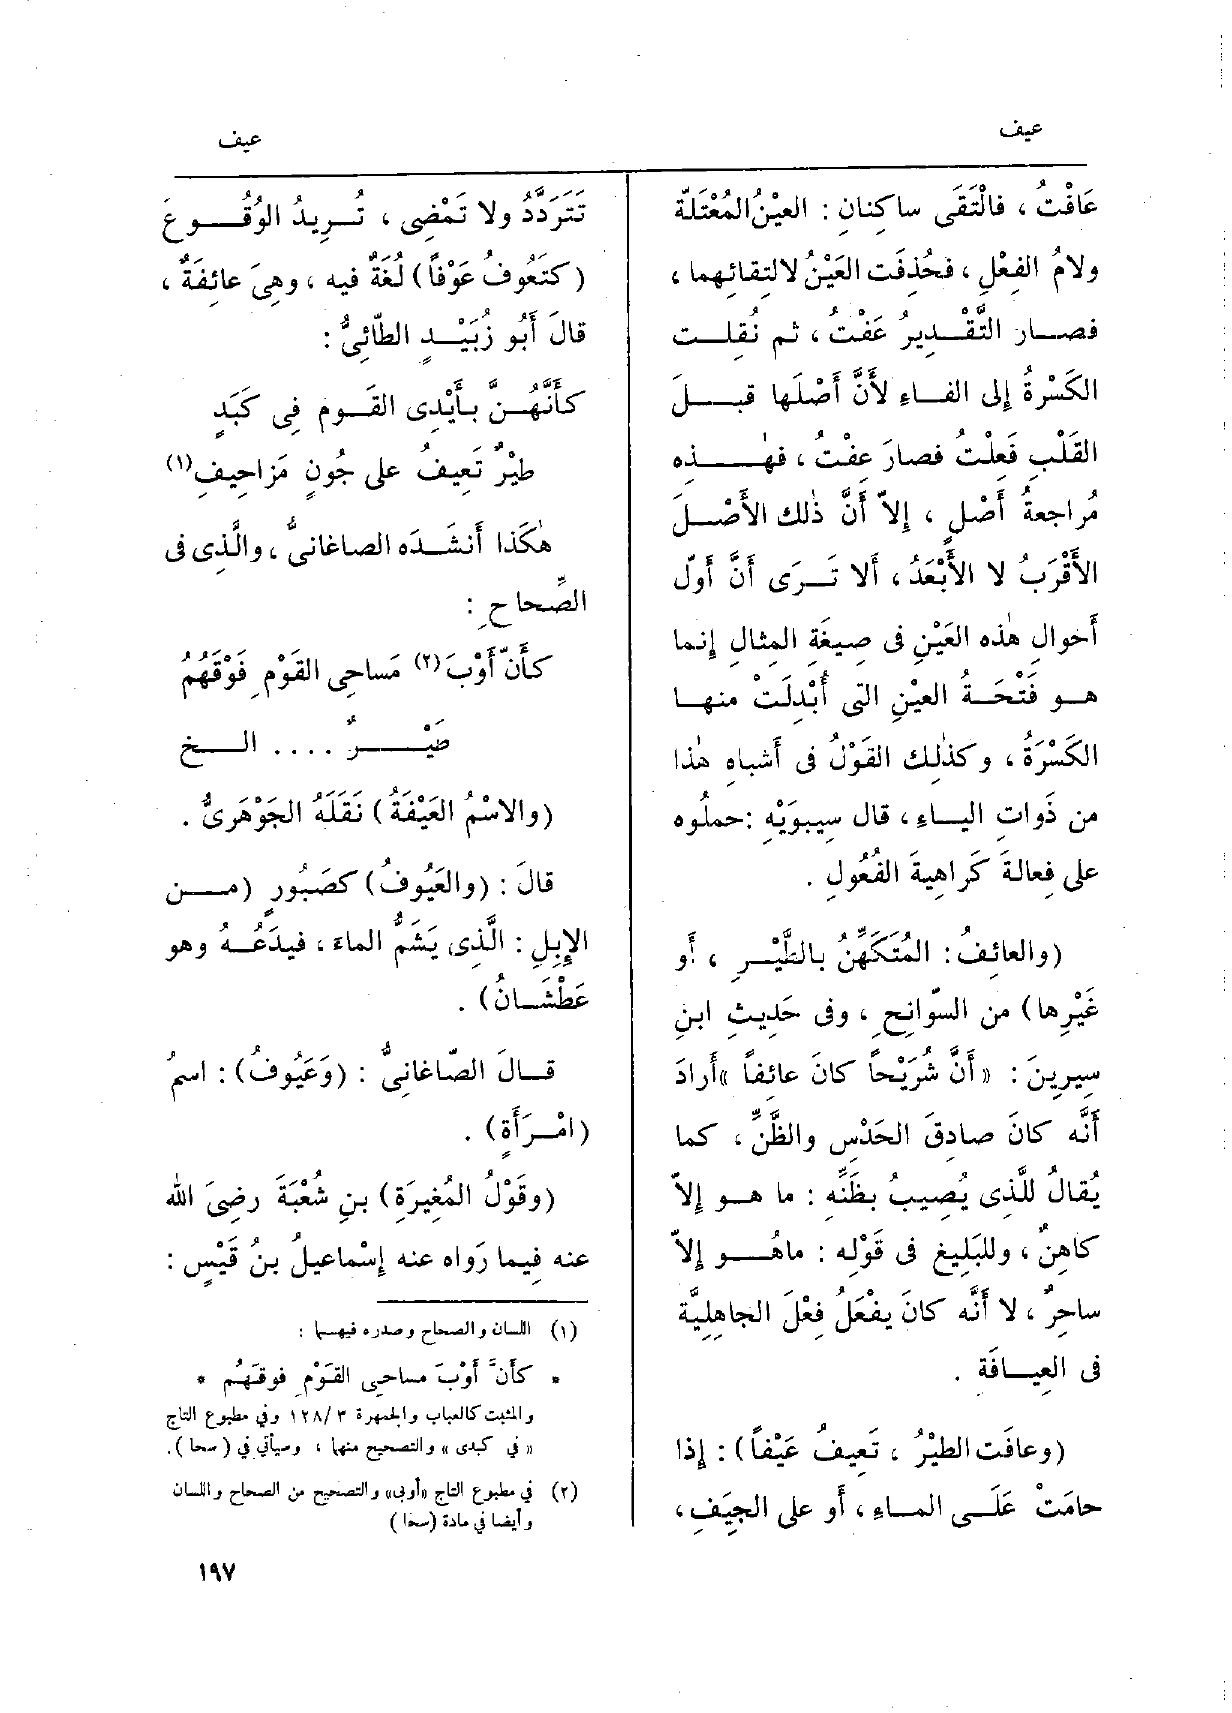 عيف
عيف
عَافْتُ ، فالْتَقَى ساكنانِ : العيْنُ المُعْتَلَّة
ولامُ الفِعْلِ ، فحُذِفَت العَيْنُ لالتِقائِهما ،
فصـار التَّقْـدِيرُ عَفْتُ ، ثم نُقِلـت
الكَسْرَةُ إلى الفـاءِ لأَنَّ أَصْلَها قبـلَ
القَلْبِ فَعِلْتُ فصارَ عِفْتُ ، فهٰـذه
مُراجعةُ أَصْلٍ ، إلاّ أَنَّ ذٰلك الأَصْـلَ
الأَقْرَبُ لا الأَبْعَدُ ، أَلا تَـرَى أَنَّ أَولّ
أَحوالِ هٰذه العَيْنِ فى صِيغَةِ المثالِ إنما
هـو فَتْحَـةُ العيْنِ التى أُبْدِلَتْ منهـا
الكَسْرَةُ ، وكذٰلِك القَوْلُ فى أَشباهِ هٰذا
من ذَواتِ اليـاءِ ، قال سِيبوَيْهِ : حملُوه
على فِعالةَ كَراهيةَ الفُعُولِ .
(والعائِفُ : المُتَكَهِّنُ بالطَّيْـرِ ، أَو
غَيْرِها) من السّوانِحِ ، وفى حَدِيثِ ابنِ
سِيرِينَ : « أَنَّ شُرَيْحاً كانَ عائفاً » أَرادَ
أَنَّه كانَ صادِقَ الحَدْسِ والظَّنِّ ، كما
يُقالُ للَّذِى يُصِيبُ بظَنِّه : ما هـو إلاّ
كاهِنٌ ، وللبَلِيغ فى قَوْلِه : ماهُـو إلاّ
ساحِرٌ ، لا أَنَّه كانَ يفْعَلُ فِعْلَ الجاهِلِيَّة
فى العِيـافَة .
(وعافَت الطيْرُ ، تَعِيفُ عَيْفاً) : إذا
حامَتْ عَلَـى المـاءِ ، أَو على الجِيَفِ ،
تَتَردَّدُ ولا تَمْضِى ، تُـرِيدُ الوُقُـوعَ
(كتَعُوفُ عَوْفاً) لُغَةٌ فيه ، وهىَ عائِفَةٌ ،
قالَ أَبُو زُبَيْـدٍ الطّائِىُّ :
كأَنَّهُـنَّ بأَيْدِى القَـومِ فِى كَبَدٍ
طيْرٌ تَعِيفُ على جُونٍ مَزاحِيفِ(١)
هٰكَذا أَنشَـدَه الصاغانىُّ ، والَّذِى فى
الصِّحاحِ :
كأَنّ أَوْبَ(٢) مَساحِى القَوْمِ فَوْقَهُمُ
طَيْـرٌ .... الـخ
(والاسْمُ العَيْفَةُ) نَقَلَهُ الجَوْهَرىُّ .
قالَ : (والعَيُوفُ) كصَبُورٍ (مـن
الإِبِلِ : الَّذِى يَشَمُّ الماءَ ، فيدَعُـهُ وهو
عَطْشَـانُ) .
قـالَ الصّاغانِىُّ : (وَعَيُوفُ) : اسمُ
(امْـرَأَةٍ) .
(وقَوْلُ المُغِيرَةِ) بنِ شُعْبَةَ رضِىَ الله
عنه فِيما رَواه عنه إسْماعيلُ بنُ قَيْسٍ :
(١) اللسان والصحاح وصدره فيهـا :
* كأن أَوْبَ مساحى القَوْمِ فوقهُم *
والمثبت كالعباب والجمهرة ٣ /١٢٨ وفى مطبوع التاج
« فى كبدى » والتصحيح منها ، وسيأتى فى ( سحا ).
(٢) فى مطبوع التاج «أوبى» والتصحيح من الصحاح واللسان
وأيضا فى مادة (سحا)
١٩٧